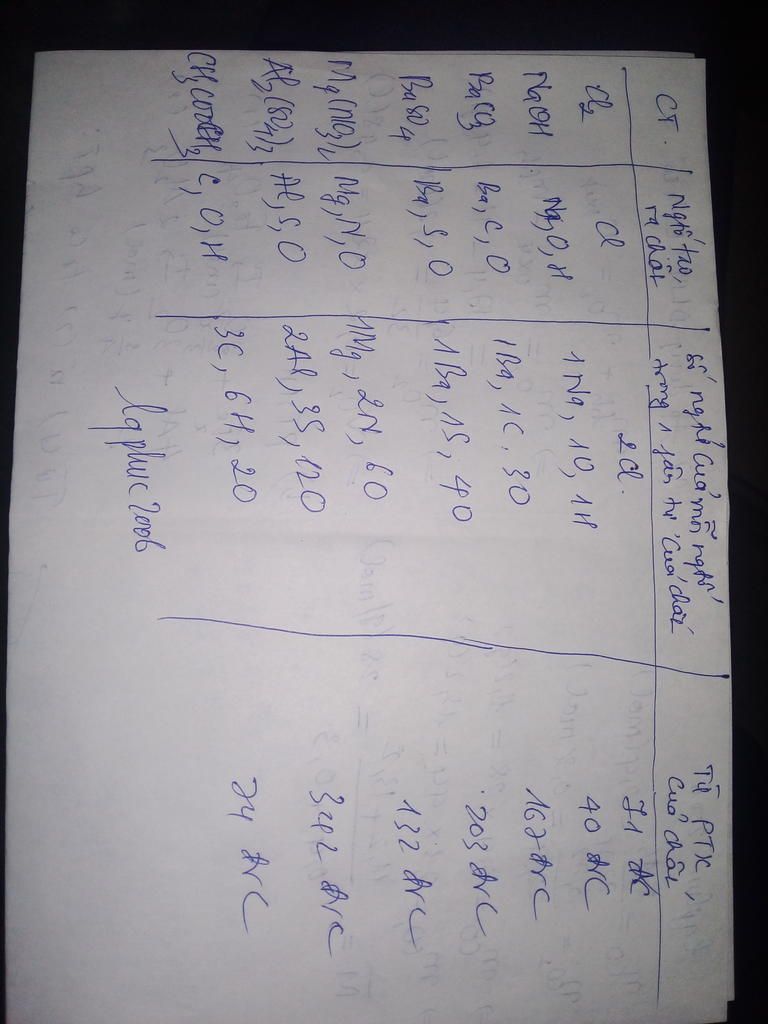 CT. Ngtố tạo ra chất Số ngtử của mỗi ngtố trong 1 phân tử của chất Từ PTK của chất
Cl₂ Cl 2Cl. 71 ĐvC
NaOH Na, O, H 1Na, 1O, 1H 40 ĐvC
BaCO3 Ba, C, O 1Ba, 1C, 3O 167 ĐvC
BaSO4 Ba, S, O 1Ba, 1S, 4O 203 ĐvC
Mg(NO3)2 Mg, N, O 1Mg, 2N, 6O 132 ĐvC
Al2(SO4)3 Al, S, O 2Al, 3S, 12O 342 ĐvC
C, O, H 3C, 6H, 2O 74 ĐvC